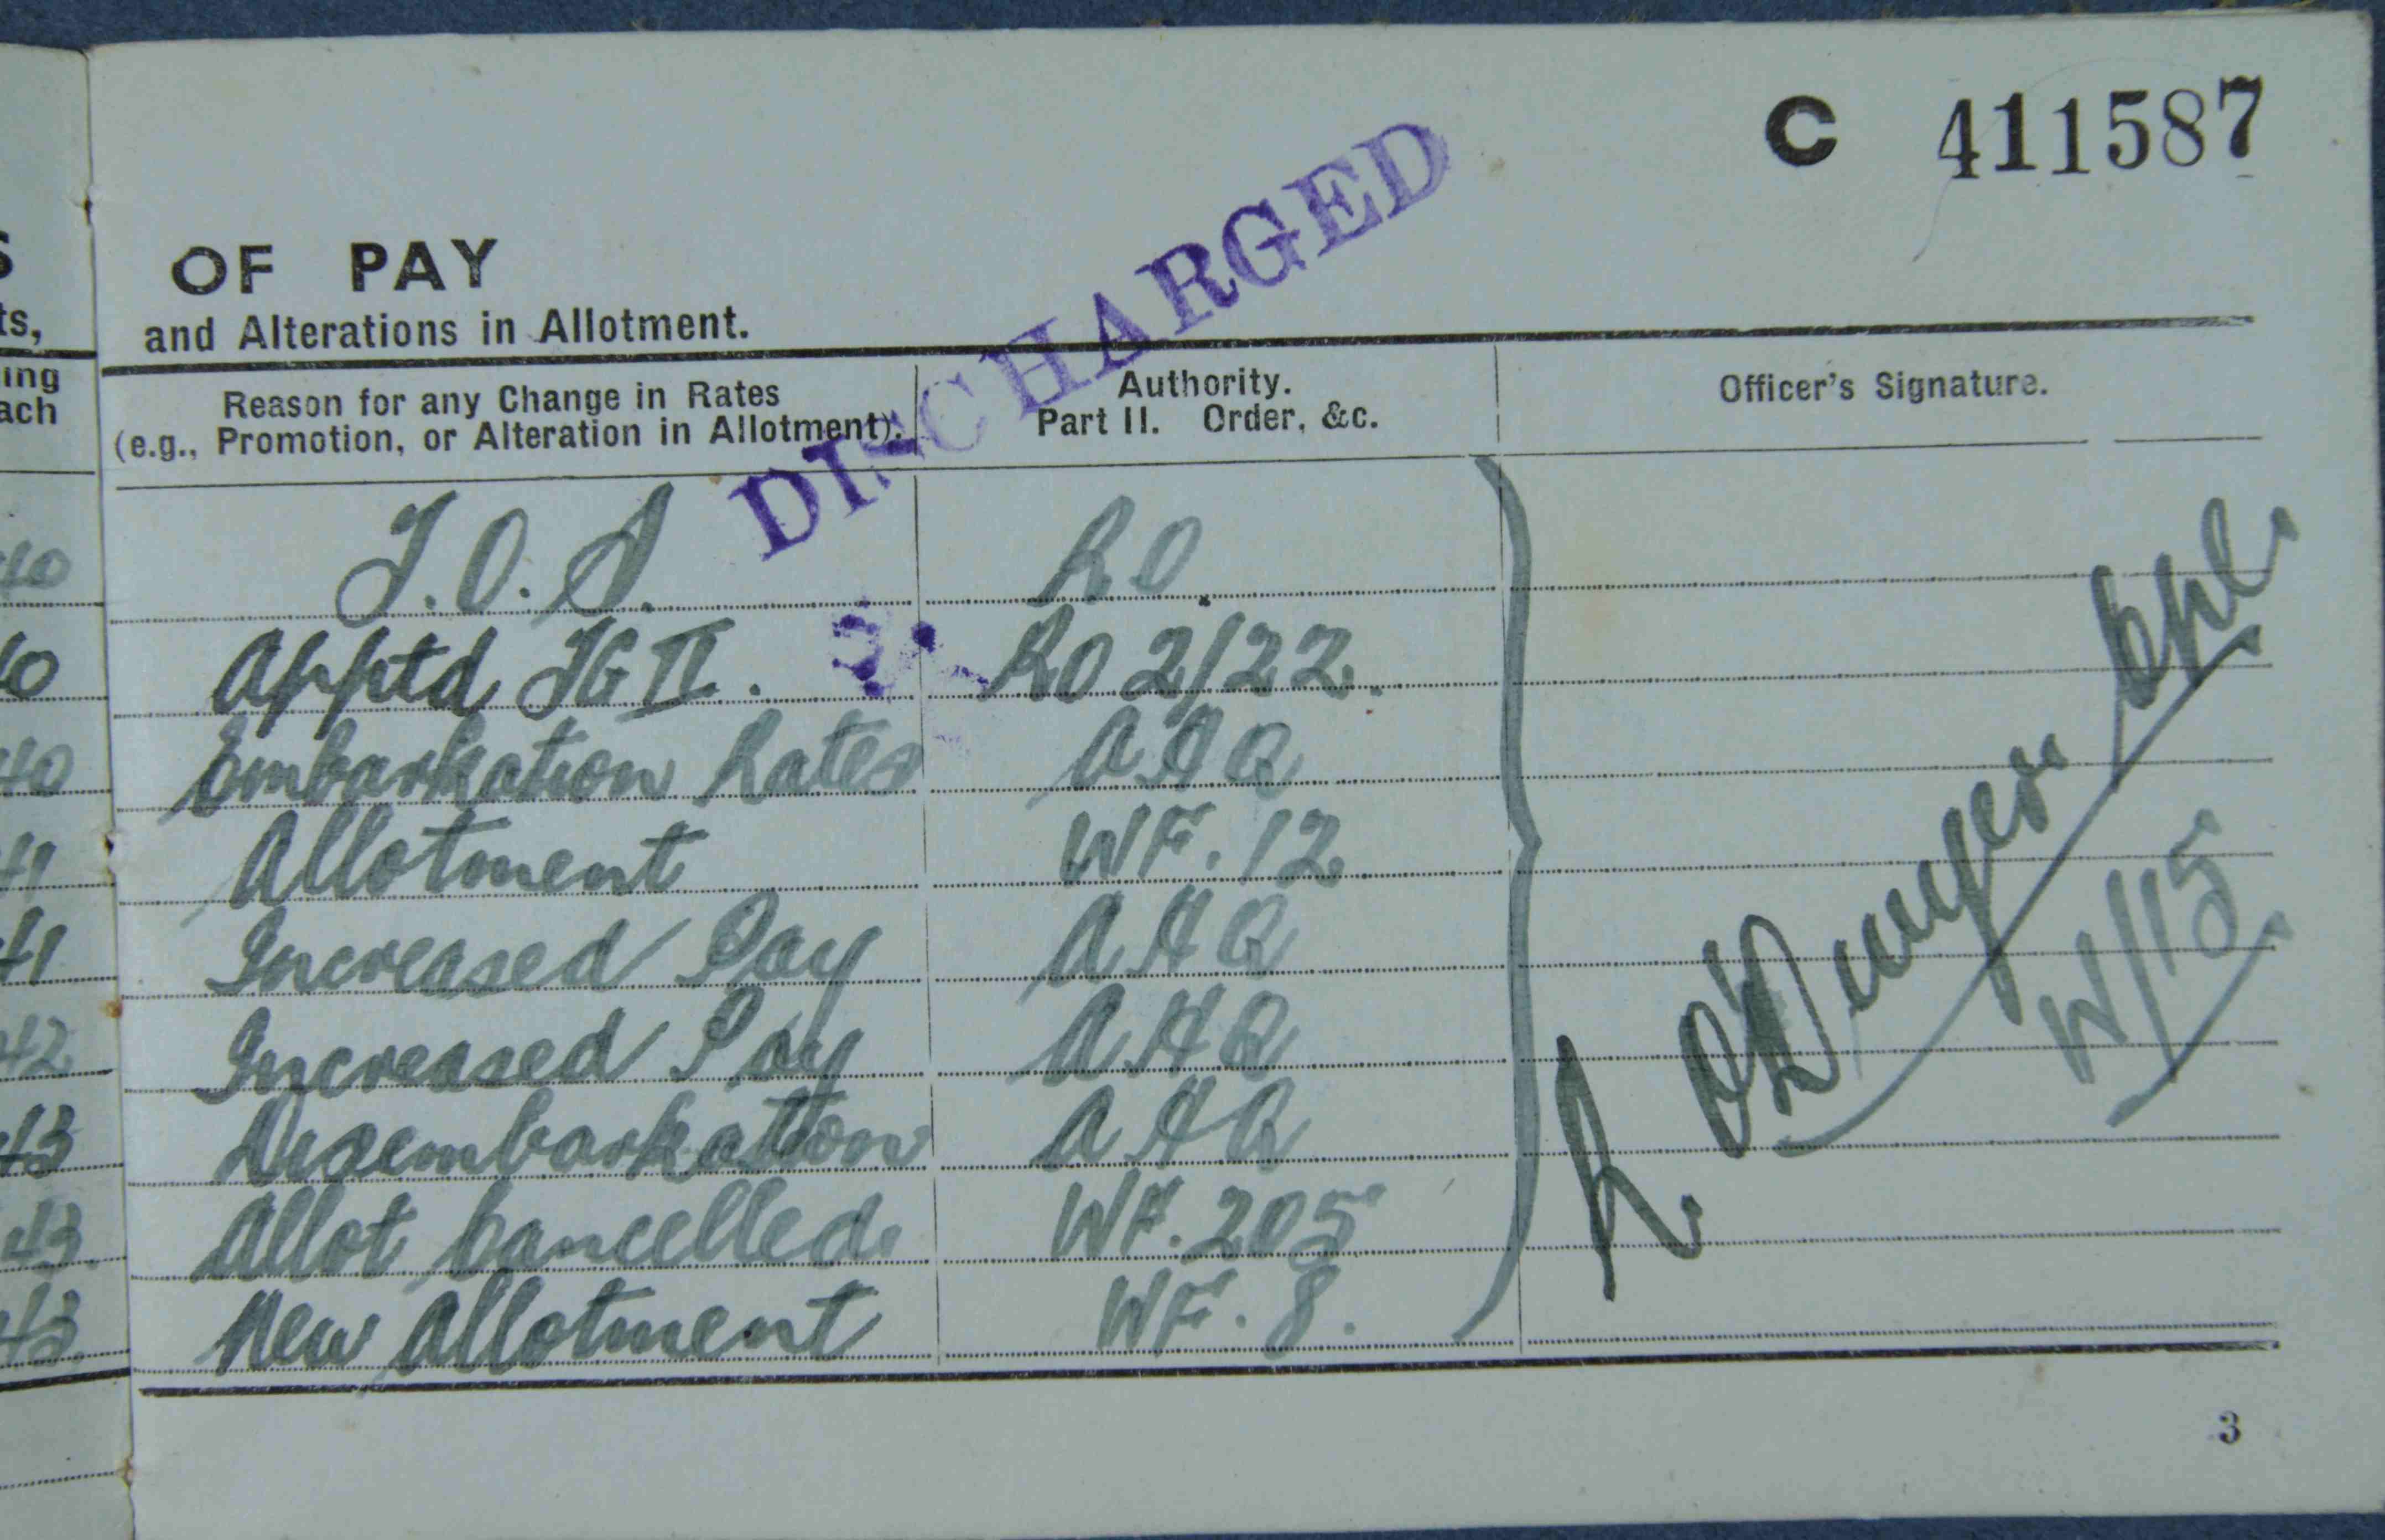 C 411587
DISCHARGED
OF PAY
ts,
and Alterations in Allotment.
ing
ach
Reason for any Change in Rates
(e.g., Promotion, or Alteration in Allotment).
Authority.
Part II. Order, &c.
Officer's Signature.
40 T.O.S. RO
40 Apptd TG II. RO 2/22.
40 Embarkation Rates AHQ
41 Allotment WF. 12
41 Increased Pay AHQ
42 Increased Pay AHQ
43 Disembarkation AHQ
43 Allot Cancelled. WF. 205
43 New Allotment WF. 8.
Cpl.
W/15
3